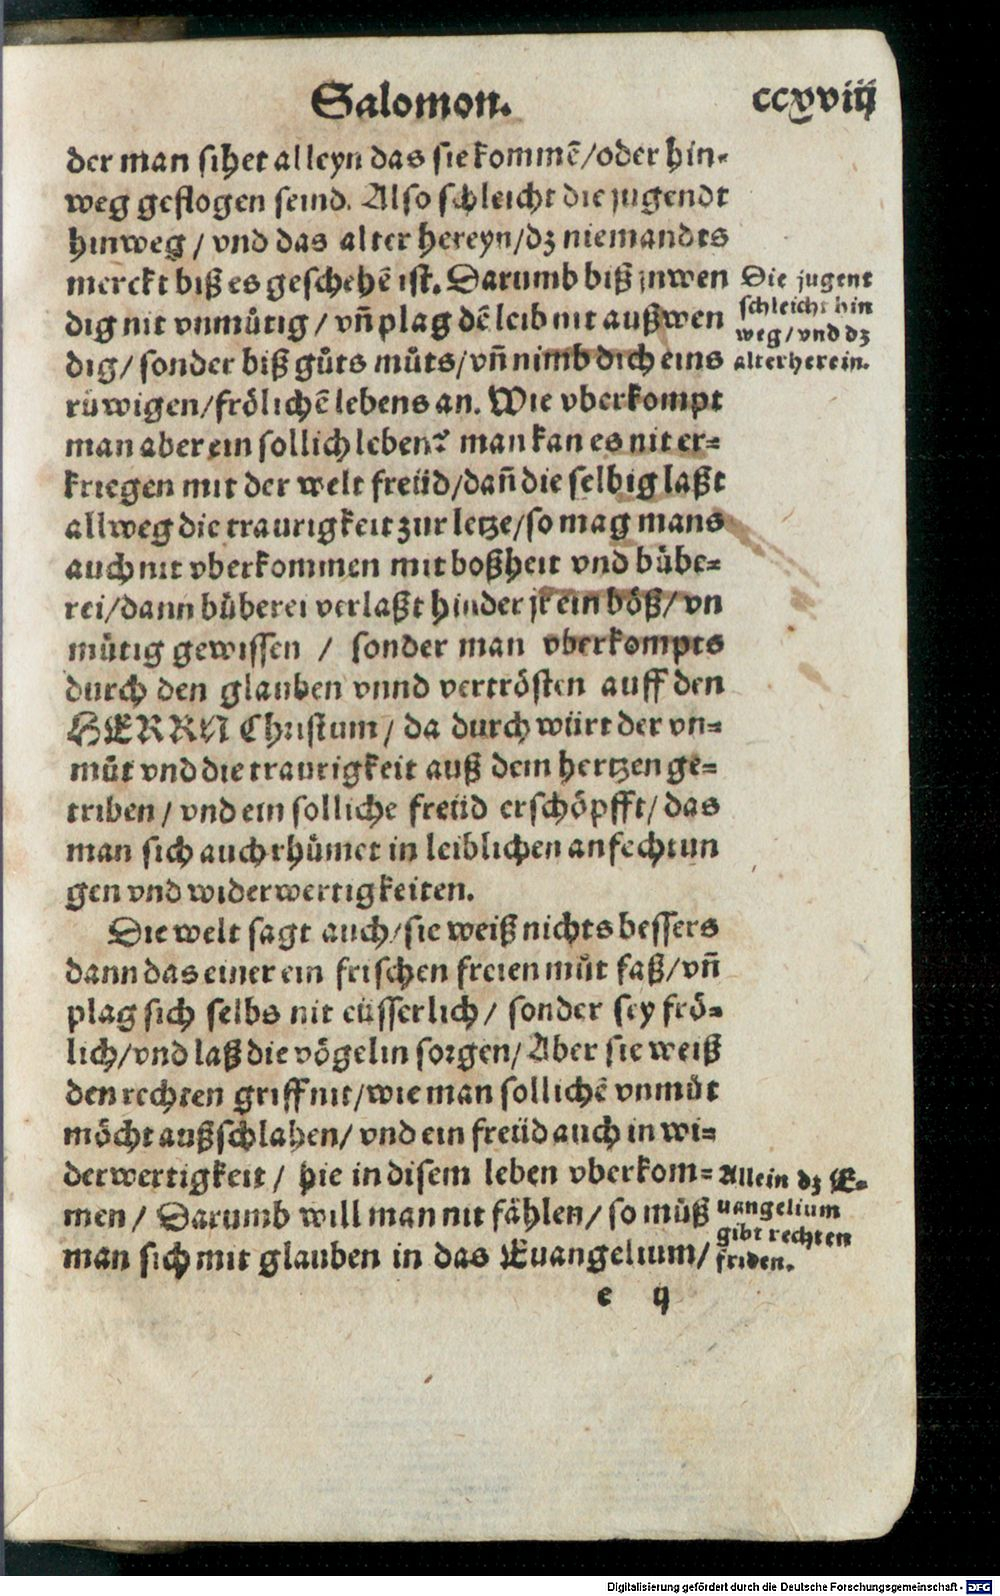 Salomon. ccxviij
der man sihet alleyn das sie kommē/oder hin-
weg geflogen seind. Also schleicht die jugendt
hinweg / vnd das alter hereyn/dz niemandts
merckt biß es geschehē ist. Darumb biß inwen
dig nit vnmůtig / vñ plag dē leib nit außwen
dig/ sonder biß gůts můts/vñ nimb dich eins
růwigen/frölichē lebens an. Wie vberkompt
man aber ein sollich leben? man kan es nit er-
kriegen mit der welt freüd/dañ die selbig laßt
allweg die traurigkeit zur letze/so mag mans
auch nit vberkommen mit boßheit vnd bůbe-
rei/dann bůberei verlaßt hinder jr ein böß/vn
můtig gewissen / sonder man vberkompts
durch den glauben vnnd vertrösten auff den
HERRN Christum/ da durch würt der vn-
můt vnd die traurigkeit auß dem hertzen ge-
triben / vnd ein solliche freüd erschöpfft/ das
man sich auch rhůmet in leiblichen anfechtun
gen vnd widerwertigkeiten.
Die welt sagt auch/sie weiß nichts bessers
dann das einer ein frischen freien můt faß/vñ
plag sich selbs nit eüsserlich/ sonder sey frö-
lich/vnd laß die vögelin sorgen/ Aber sie weiß
den rechten griff nit/wie man sollichē vnmůt
möcht außschlahen/ vnd ein freüd auch in wi-
derwertigkeit / hie in disem leben vberkom-
men / Darumb will man nit fählen/ so můß
man sich mit glauben in das Euangelium/
Die jugent
schleicht hin
weg/vnd dz
alter herein.
Allein dz E-
uangelium
gibt rechten
friden.
e ij
Digitalisierung gefördert durch die Deutsche Forschungsgemeinschaft - DFG